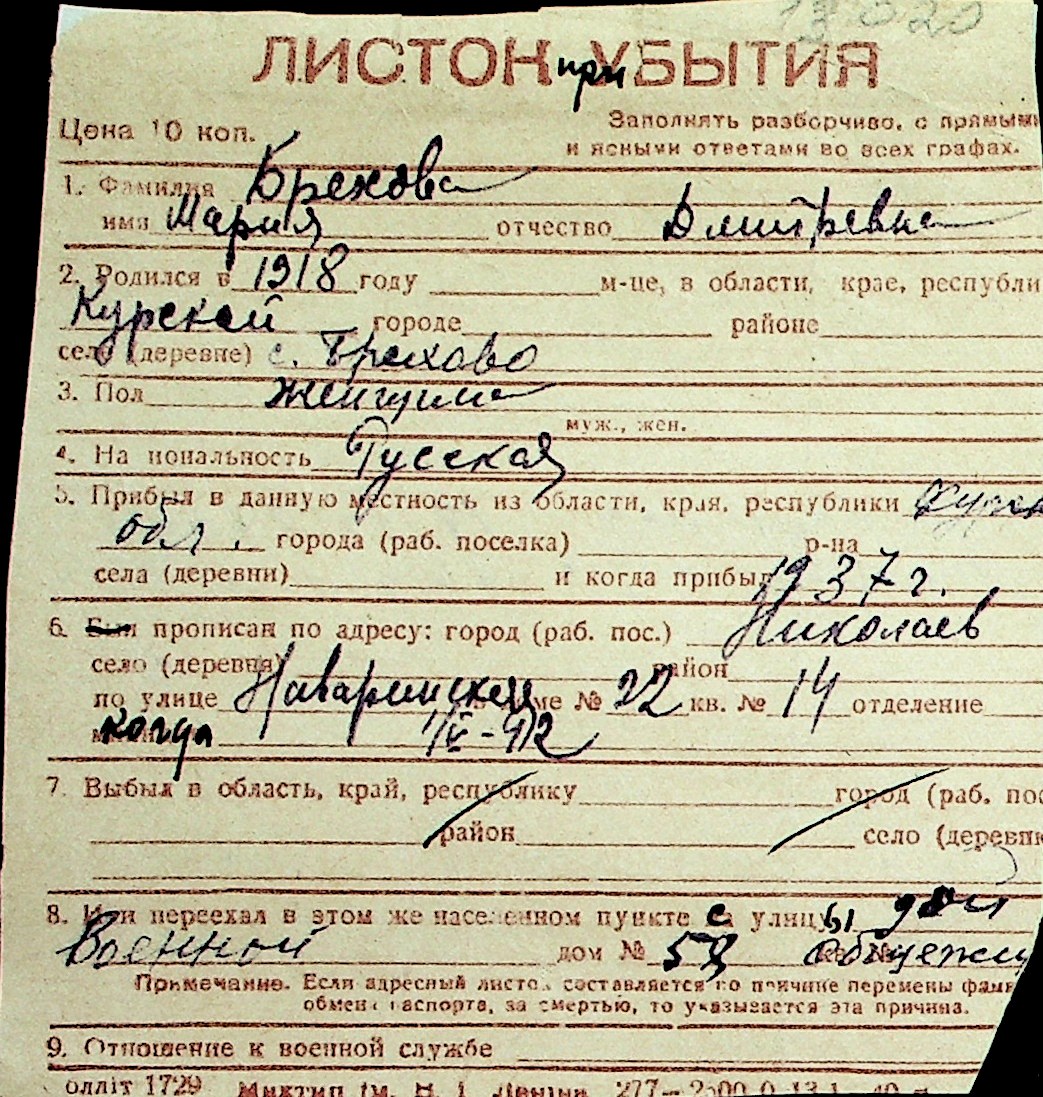 ЛИСТОК при УБЫТИЯ
Цена 10 коп.
Заполнять разборчиво, с прямыми
и ясными ответами во всех графах.
1. Фамилия Брехова
имя Мария отчество Дмитревна
2. Родился в 1918 году м-це, в области, крае, республи
Курской городе районе
село (деревне) с. Брехово
3. Пол женщина
муж., жен.
4. Национальность Русская
5. Прибыл в данную местность из области, края, республики Курск
обл. города (раб. поселка) р-на
села (деревни) и когда прибыл 1937 г.
6. прописан по адресу: город (раб. пос.) Николаев
село (деревня) район
по улице Наваринская доме № 22 кв. № 14 отделение
когда 1/IV-42
7. Выбыл в область, край, республику город (раб. пос
район село (деревню
8. Или переехал в этом же населенном пункте с улицы
Военной дом № 53 общежи
Примечание. Если адресный листок составляется по причине перемены фами
обмена паспорта, за смертью, то указывается эта причина.
9. Отношение к военной службе
олліт 1729 277—2500 0